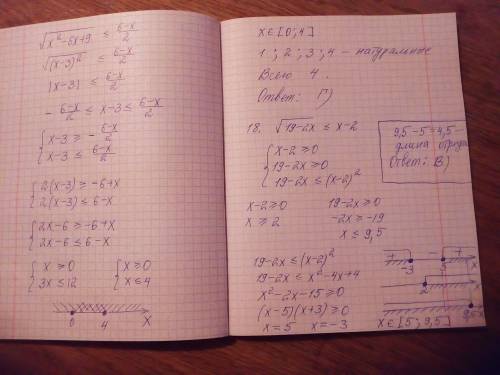 √(x²-6x+9) ≤ (6-x)/2
√((x-3)²) ≤ (6-x)/2
|x-3| ≤ (6-x)/2
-(6-x)/2 ≤ x-3 ≤ (6-x)/2
{ x-3 ≥ -(6-x)/2
x-3 ≤ (6-x)/2
{ 2(x-3) ≥ -6+x
2(x-3) ≤ 6-x
{ 2x-6 ≥ -6+x
2x-6 ≤ 6-x
{ x ≥ 0 { x ≥ 0
3x ≤ 12 x ≤ 4
0 4 x
x∈[0;4]
1; 2; 3; 4 - натуральные
Всего 4.
Ответ: Г)
18. √(19-2x) ≤ x-2
{ x-2 ≥ 0
19-2x ≥ 0
19-2x ≤ (x-2)²
9,5-5=4,5-
длина отрез
Ответ: В)
x-2 ≥ 0 19-2x ≥ 0
x ≥ 2 -2x ≥ -19
x ≤ 9,5
19-2x ≤ (x-2)²
19-2x ≤ x²-4x+4
x²-2x-15 ≥ 0
(x-5)(x+3) ≥ 0
x=5 x=-3
+ - +
-3 5 x
2 x
9,5 x
x∈[5; 9,5]